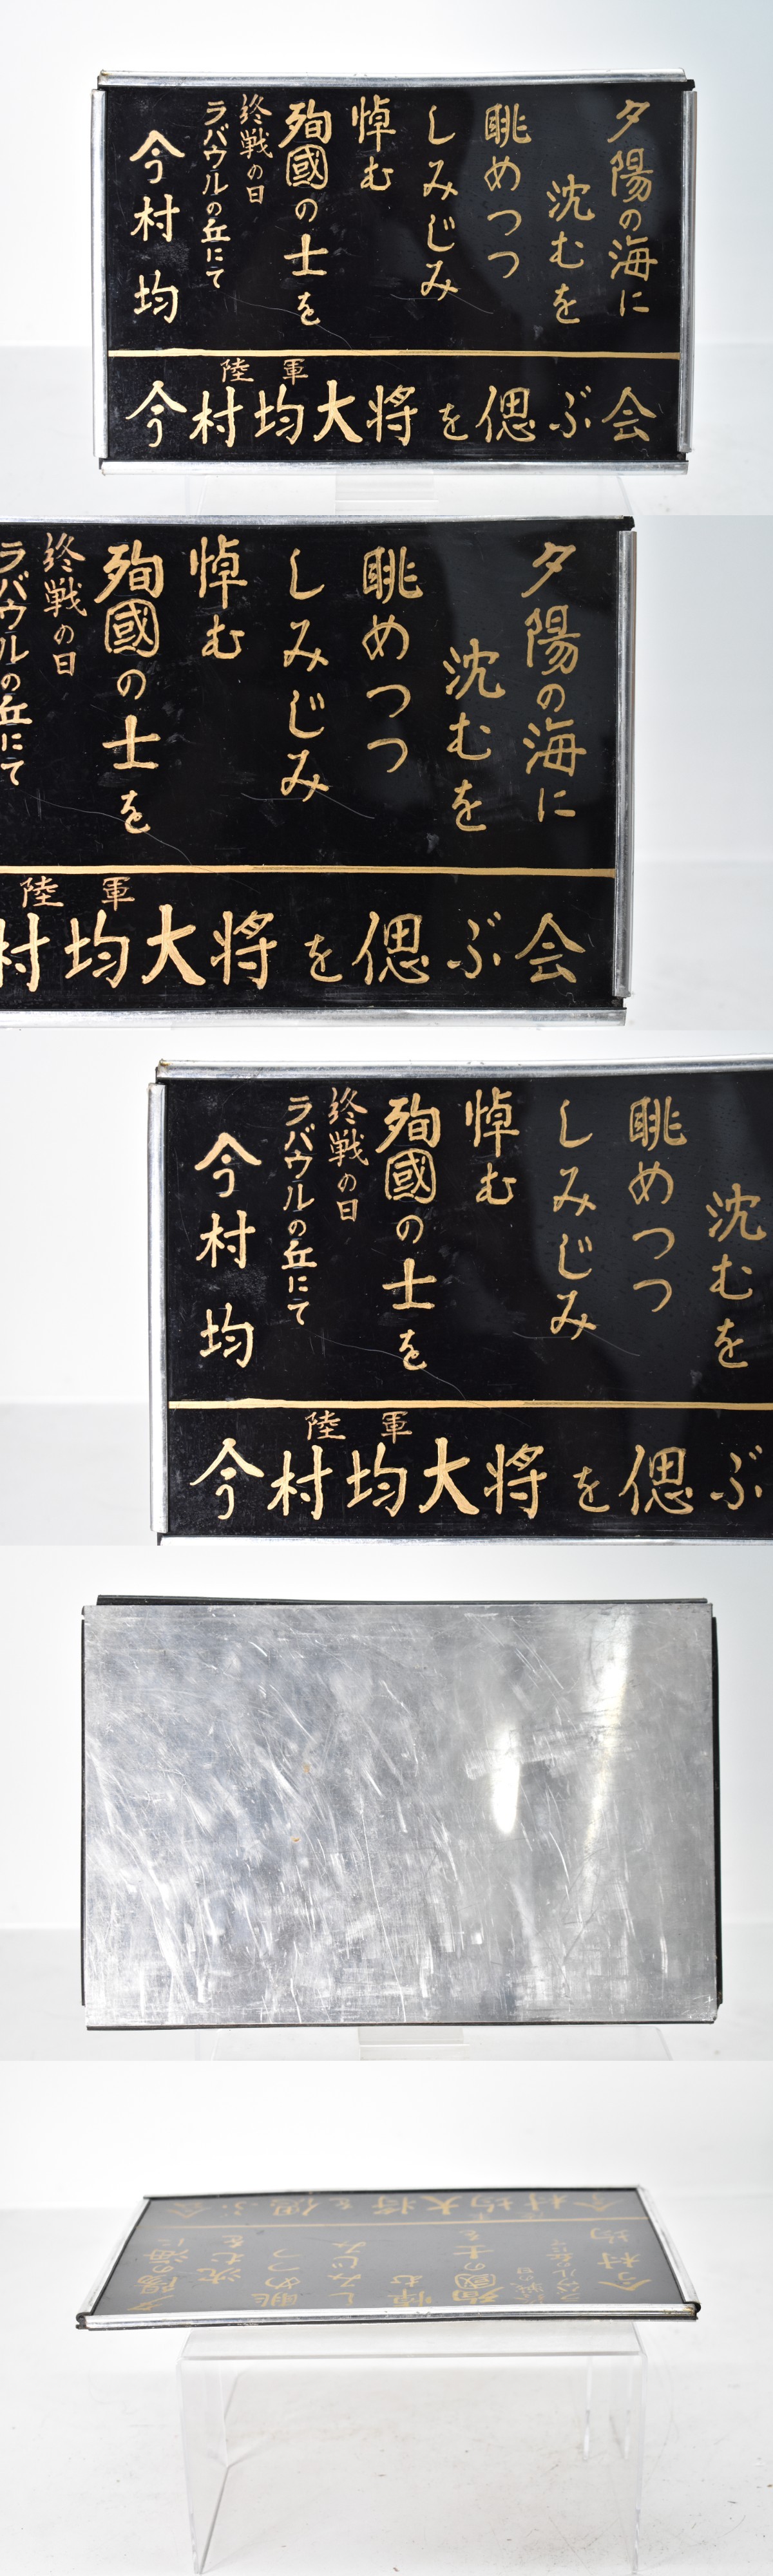 夕陽の海に
沈むを
眺めつつ
しみじみ
悼む
殉國の士を
終戦の日
ラバウルの丘にて
今村均
陸軍
今村均大将を偲ぶ会
夕陽の海に
沈むを
眺めつつ
しみじみ
悼む
殉國の士を
終戦の日
ラバウルの丘にて
陸軍
村均大将を偲ぶ会
沈むを
眺めつつ
しみじみ
悼む
殉國の士を
終戦の日
ラバウルの丘にて
今村均
陸軍
今村均大将を偲ぶ